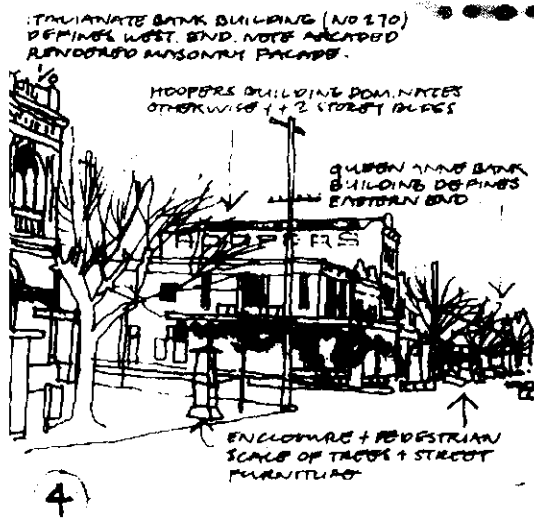 ITALIANATE BANK BUILDING (NO 270)
DEFINES WEST. END. NOTE ARCADED
RENDERED MASONRY FACADE.
HOOPERS BUILDING DOMINATES
OTHERWISE 1 + 2 STOREY BLDGS
QUEEN ANNE BANK
BUILDING DEFINES
EASTERN END
HOOPERS
ENCLOSURE + PEDESTRIAN
SCALE OF TREES + STREET
FURNITURE
4